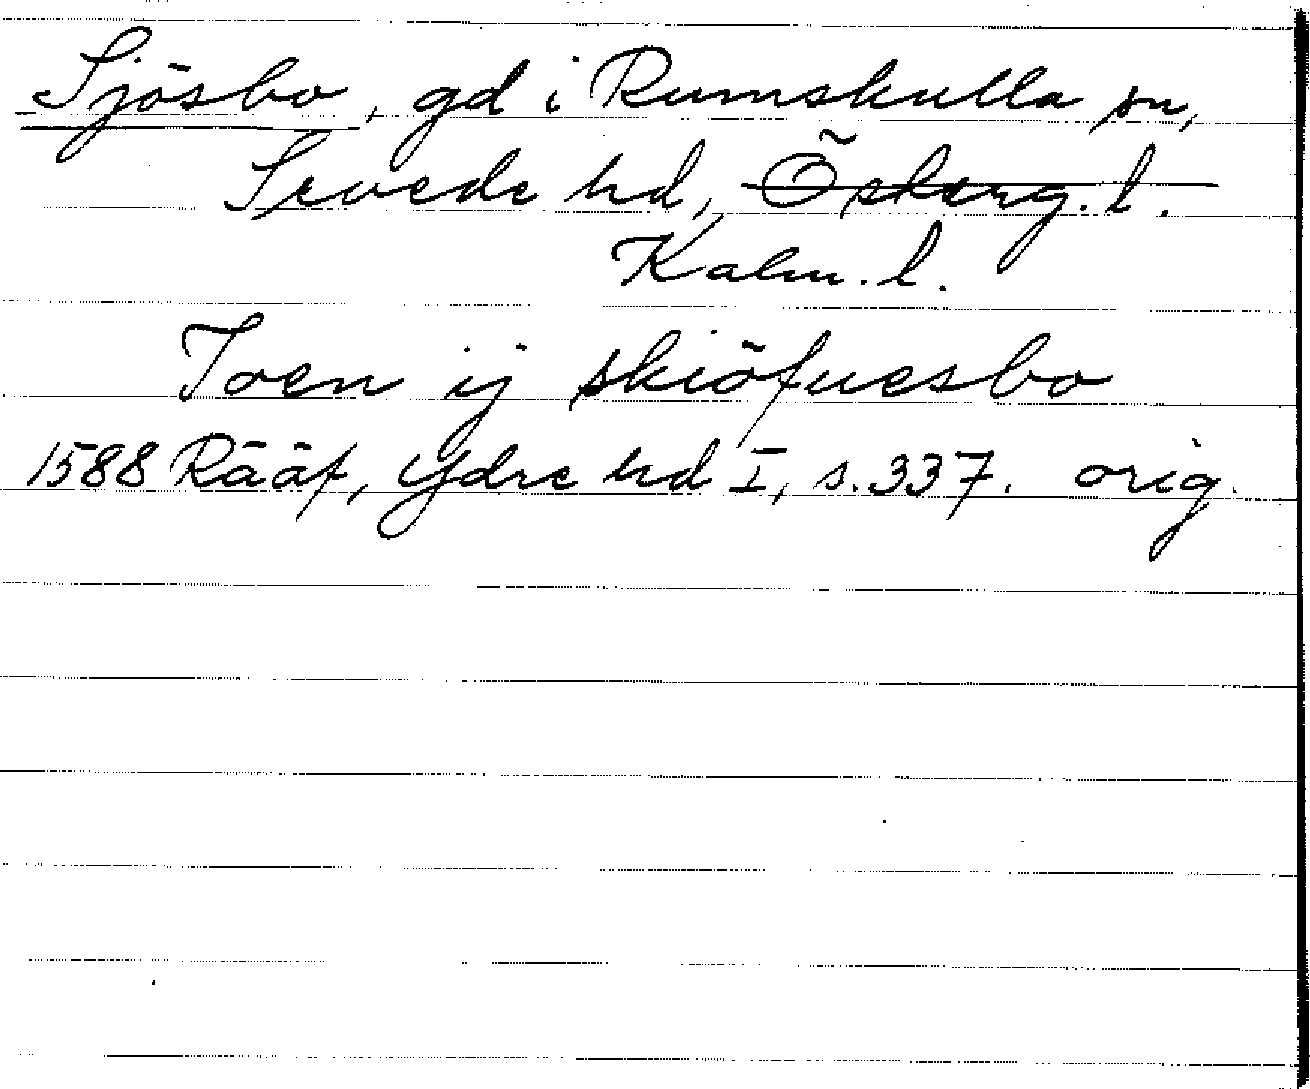 Sjösbo, gd i Rumskulla sn,
Sevede hd, Österg. l.
Kalm. l.
Joen ij skiöfuesbo
1588 Rääf, Ydre hd I, s. 337. orig.